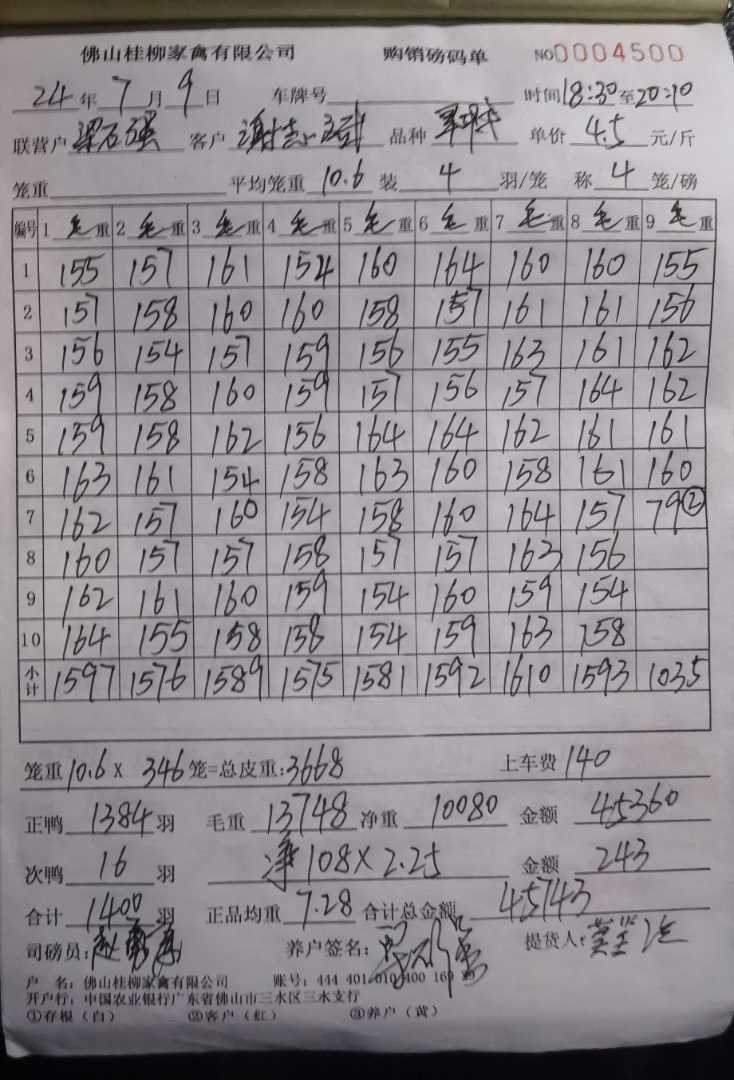 佛山桂柳家禽有限公司 购销磅码单 NO0004500
24年7月9日 车牌号 时间18:30至20:10
联营户 梁石强 客户 品种 单价 4.5 元/斤
笼重 平均笼重 10.6 装 4 羽/笼 称 4 笼/磅
编号 1 毛重 2 毛重 3 毛重 4 毛重 5 毛重 6 毛重 7 毛重 8 毛重 9 毛重
1 155 157 161 154 160 164 160 160 155
2 157 158 160 160 158 157 161 161 156
3 156 154 157 159 156 155 163 161 162
4 159 158 160 159 157 156 157 164 162
5 159 158 162 156 164 164 162 161 161
6 163 161 154 158 163 160 158 161 160
7 162 157 160 154 158 160 164 157 79②
8 160 157 157 158 157 157 163 156
9 162 161 160 159 154 160 159 154
10 164 155 158 158 154 159 163 158
小计 1597 1576 1589 1575 1581 1592 1610 1593 1035
笼重 10.6 x 346 笼=总皮重:3668 上车费 140
正鸭 1384 羽 毛重 13748 净重 10080 金额 45360
次鸭 16 羽 净 108 X 2.25 金额 243
合计 1400 羽 正品均重 7.28 合计总金额 45743
司磅员: 养户签名: 提货人:
户 名: 佛山桂柳家禽有限公司 账号: 444 401 010 400 169
开户行: 中国农业银行广东省佛山市三水区三水支行
①存根(白) ②客户(红) ③养户(黄)